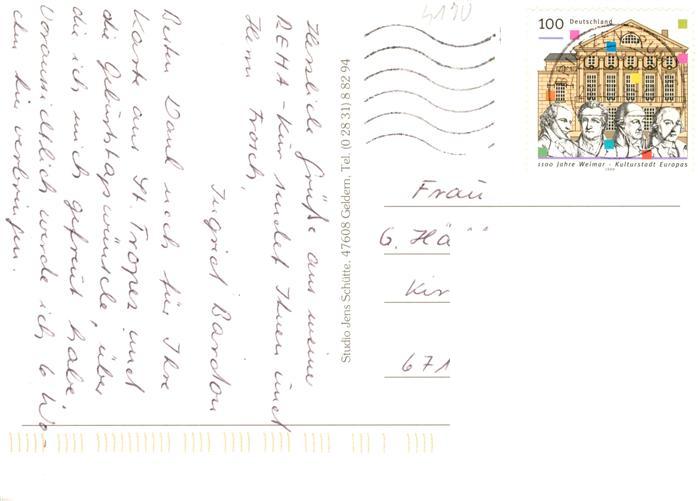 Herzliche Grüße aus meine
REHA-Kur sendet Ihnen und
Herrn Frosch,
Ingrid
Besten Dank noch für Ihre
Karte aus St Tropez und
die Geburtstagswünsche, über
die ich mich gefreut habe.
Voraussichtlich werde ich 6 Wo-
chen hie verbringen.
Studio Jens Schütte, 47608 Geldern, Tel. (0 28 31) 8 82 94
4190
100 Deutschland
1100 Jahre Weimar - Kulturstadt Europas
1999
Frau
G. Hä
Kir
671